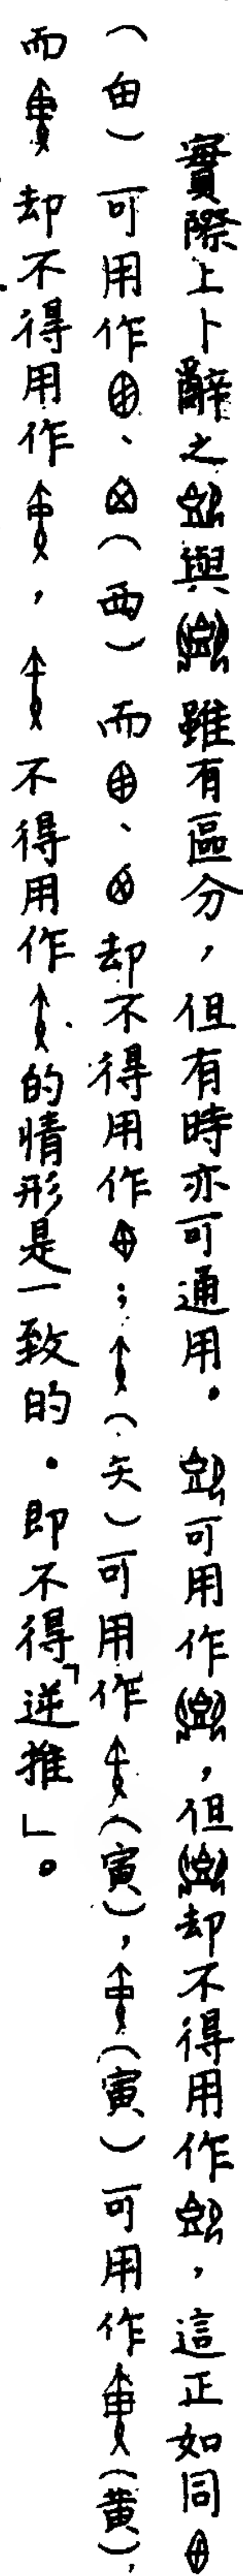 實際上卜辭之與雖有區分，但有時亦可通用。可用作，但却不得用作，這正如同
（甶）可用作、（西）而、却不得用作；（矢）可用作（寅），（寅）可用作（黄），
而却不得用作，不得用作的情形是一致的。即不得「逆推」。